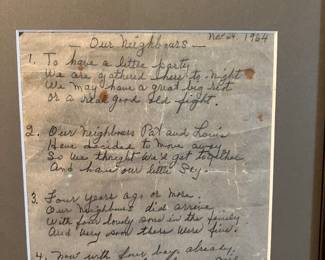 Nov 24, 1964
Our Neighbours —
1. To have a little party
We are gathered here to-night
We may have a great big rest
Or a real good old fight.
2. Our Neighbours Pat and Louis
Have decided to move away
So we thought we'd get together
And have our little Say.
3. Four years ago or more
Our Neighbours did arrive
With four lovely sons in the family
And very soon there were five.
4. Now with four boys already